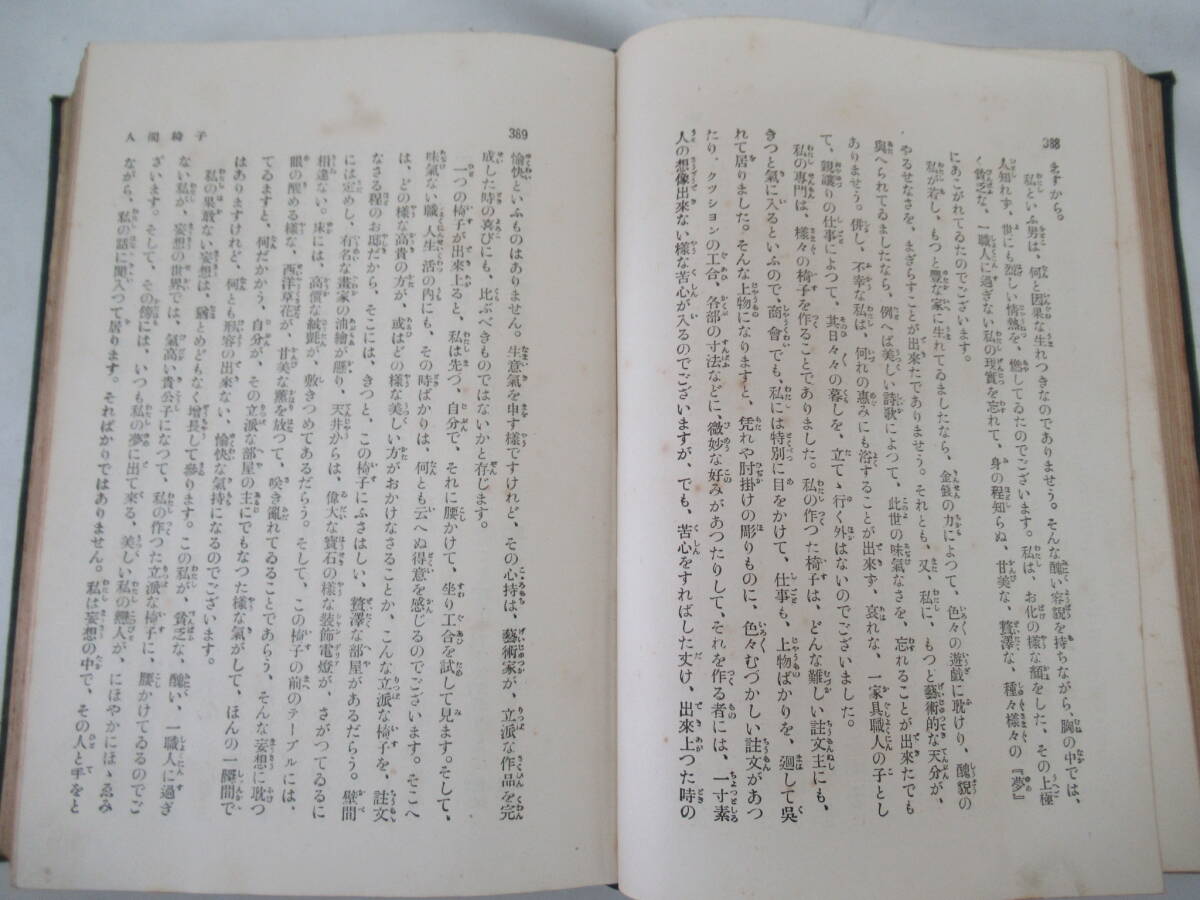 388
ますから。
私といふ男は、何と因果な生れつきなのでありませう。そんな醜い容貌を持ちながら、胸の中では、
人知れず、世にも烈しい情熱を、燃してゐたのでございます。私は、お化の様な顔をした、その上極
く貧乏な、一職人に過ぎない私の現実を忘れて、身の程知らぬ、甘美な、贅澤な、種々様々の『夢』
にあこがれてゐたのでございます。
私が若し、もつと豊な家に生れてゐましたなら、金銭の力によつて、色々の遊戯に耽けり、醜貌の
やるせなさを、まぎらすことが出来たでありませう。それとも、又、私に、もつと藝術的な天分が、
與へられてゐましたなら、例へば美しい詩歌によつて、此世の味氣なさを、忘れることが出来たでも
ありませう。併し、不幸な私は、何れの惠みにも浴することが出来ず、哀れな、一家具職人の子とし
て、親譲りの仕事によつて、其日々々の暮しを、立てゝ行く外はないのでございました。
私の専門は、様々の椅子を作ることでありました。私の作つた椅子は、どんな難しい註文主にも、
きつと氣に入るといふので、商會でも、私には特別に目をかけて、仕事も、上物ばかりを、廻して呉
れて居りました。そんな上物になりますと、凭れや肘掛けの彫りものに、色々むづかしい註文があつ
たり、クツシヨンの工合、各部の寸法などに、微妙な好みがあつたりして、それを作る者には、一寸素
人の想像出来ない様な苦心が入るのでございますが、でも、苦心をすればした丈け、出来上つた時の
389
人間椅子
愉快といふものはありません。生意氣を申す様ですけれど、その心持は、藝術家が、立派な作品を完
成した時の喜びにも、比ぶべきものではないかと存じます。
一つの椅子が出来上ると、私は先づ、自分で、それに腰かけて、坐り工合を試して見ます。そして、
味氣ない職人生活の内にも、その時ばかりは、何とも云へぬ得意を感じるのでございます。そこへ
は、どの様な高貴の方が、或はどの様な美しい方がおかけなさることか、こんな立派な椅子を、註文
なさる程のお邸だから、そこには、きつと、この椅子にふさはしい、贅澤な部屋があるだらう。壁間
には定めし、有名な畫家の油繪が懸り、天井からは、偉大な寶石の様な装飾電燈が、さがつてゐるに
相違ない。床には、高價な絨氈が、敷きつめてあるだらう。そして、この椅子の前のテーブルには、
眼の醒める様な、西洋草花が、甘美な薫を放つて、咲き亂れてゐることであらう。そんな妄想に耽つ
てゐますと、何だかかう、自分が、その立派な部屋の主にでもなつた様な氣がして、ほんの一瞬間で
はありますけれど、何とも形容の出来ない、愉快な氣持になるのでございます。
私の果敢ない妄想は、猶とめどもなく増長して参ります。この私が、貧乏な、醜い、一職人に過ぎ
ない私が、妄想の世界では、氣高い貴公子になつて、私の作つた立派な椅子に、腰かけてゐるのでご
ざいます。そして、その傍には、いつも私の夢に出て来る、美しい私の戀人が、にほやかにほゝゑみ
ながら、私の話に聞入つて居ります。そればかりではありません。私は妄想の中で、その人と手をと